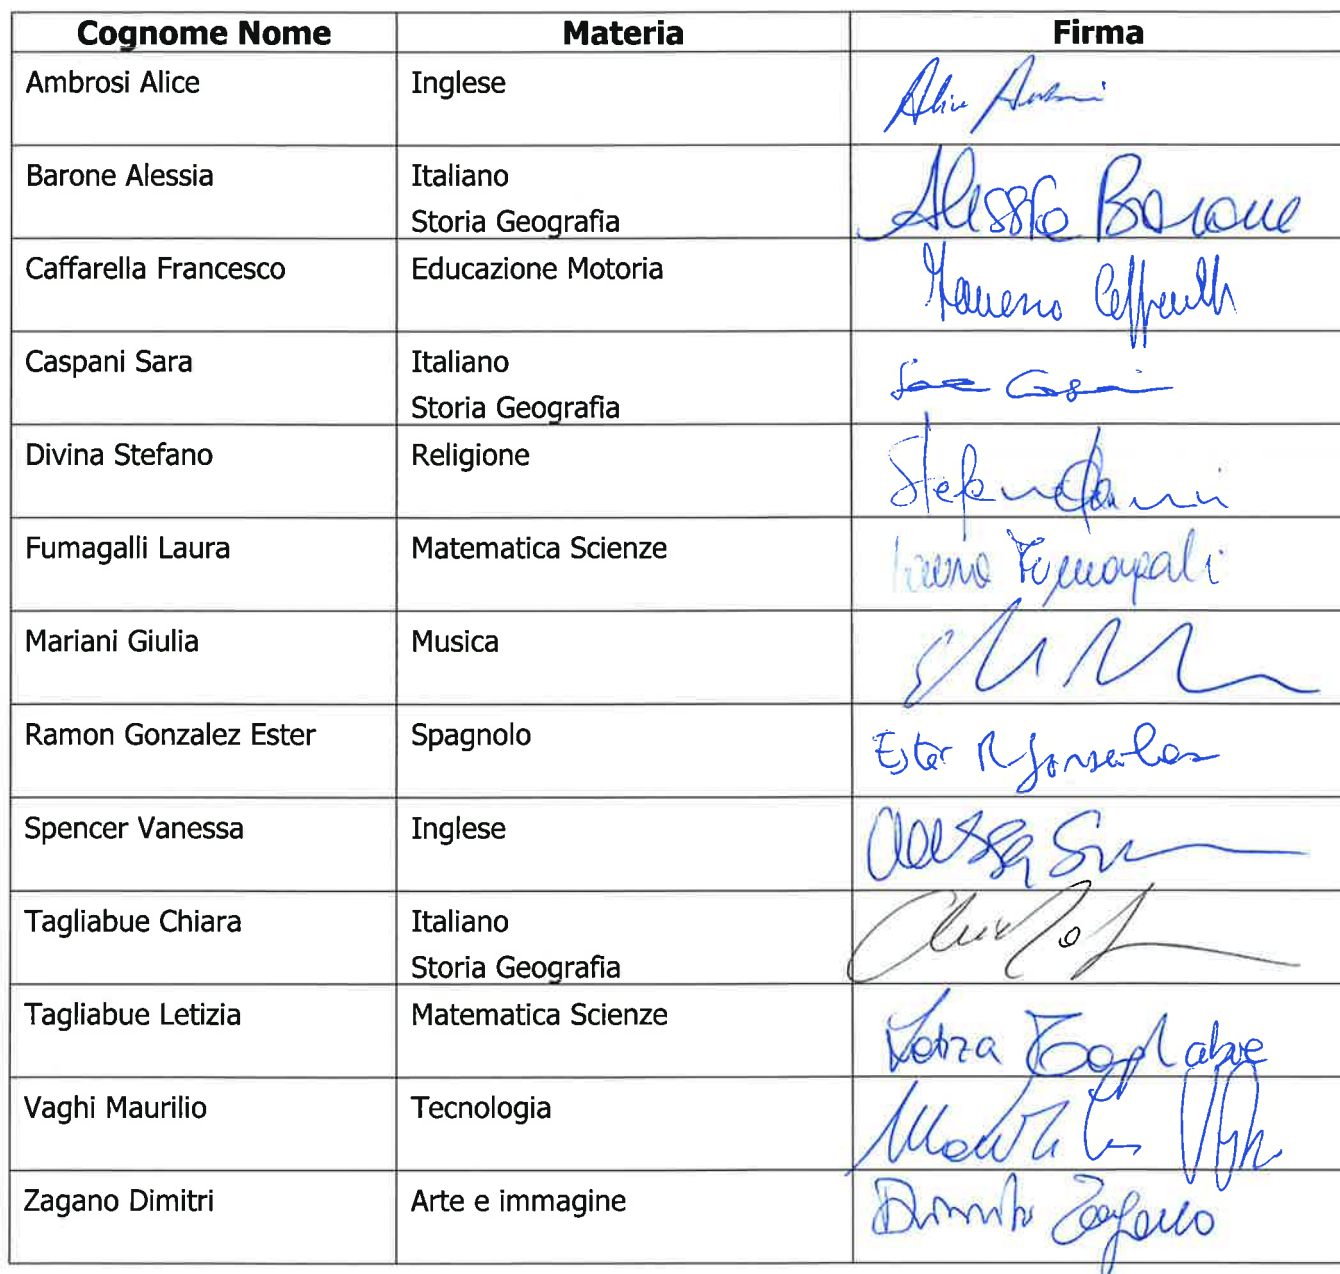 Cognome Nome Materia Firma
Ambrosi Alice Inglese
Barone Alessia Italiano Alessia Barone
Storia Geografia
Caffarella Francesco Educazione Motoria Francesco Caffarella
Caspani Sara Italiano
Storia Geografia
Divina Stefano Religione
Fumagalli Laura Matematica Scienze Laura Fumagalli
Mariani Giulia Musica
Ramon Gonzalez Ester Spagnolo Ester R Gonzalez
Spencer Vanessa Inglese
Tagliabue Chiara Italiano
Storia Geografia
Tagliabue Letizia Matematica Scienze Letizia Tagliabue
Vaghi Maurilio Tecnologia
Zagano Dimitri Arte e immagine Dimitri Zagano